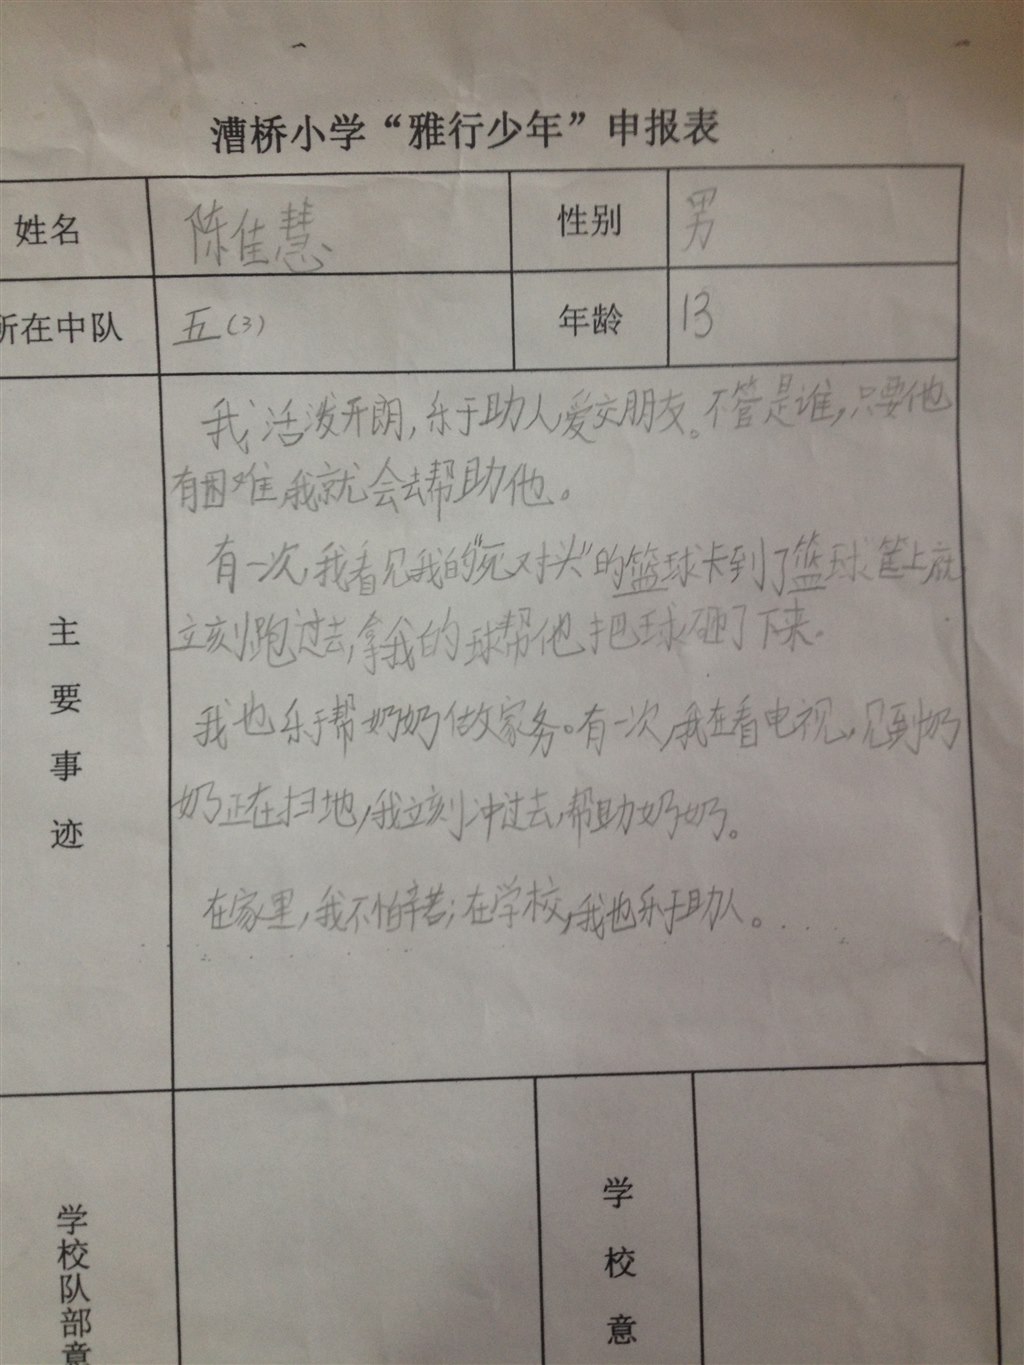 漕桥小学“雅行少年”申报表
姓名 陈佳慧 性别 男
所在中队 五(3) 年龄 13
我活泼开朗,乐于助人爱交朋友。不管是谁,只要他
有困难,我就会去帮助他。
有一次,我看见我的“死对头”的篮球卡到了篮球筐上
立刻跑过去,拿我的球帮他把球砸了下来。
我也乐于帮奶奶做家务。有一次,我在看电视,见到奶
奶正在扫地,我立刻冲过去,帮助奶奶。
在家里,我不怕辛苦;在学校,我也乐于助人。
主要事迹
学校队部意
学校意